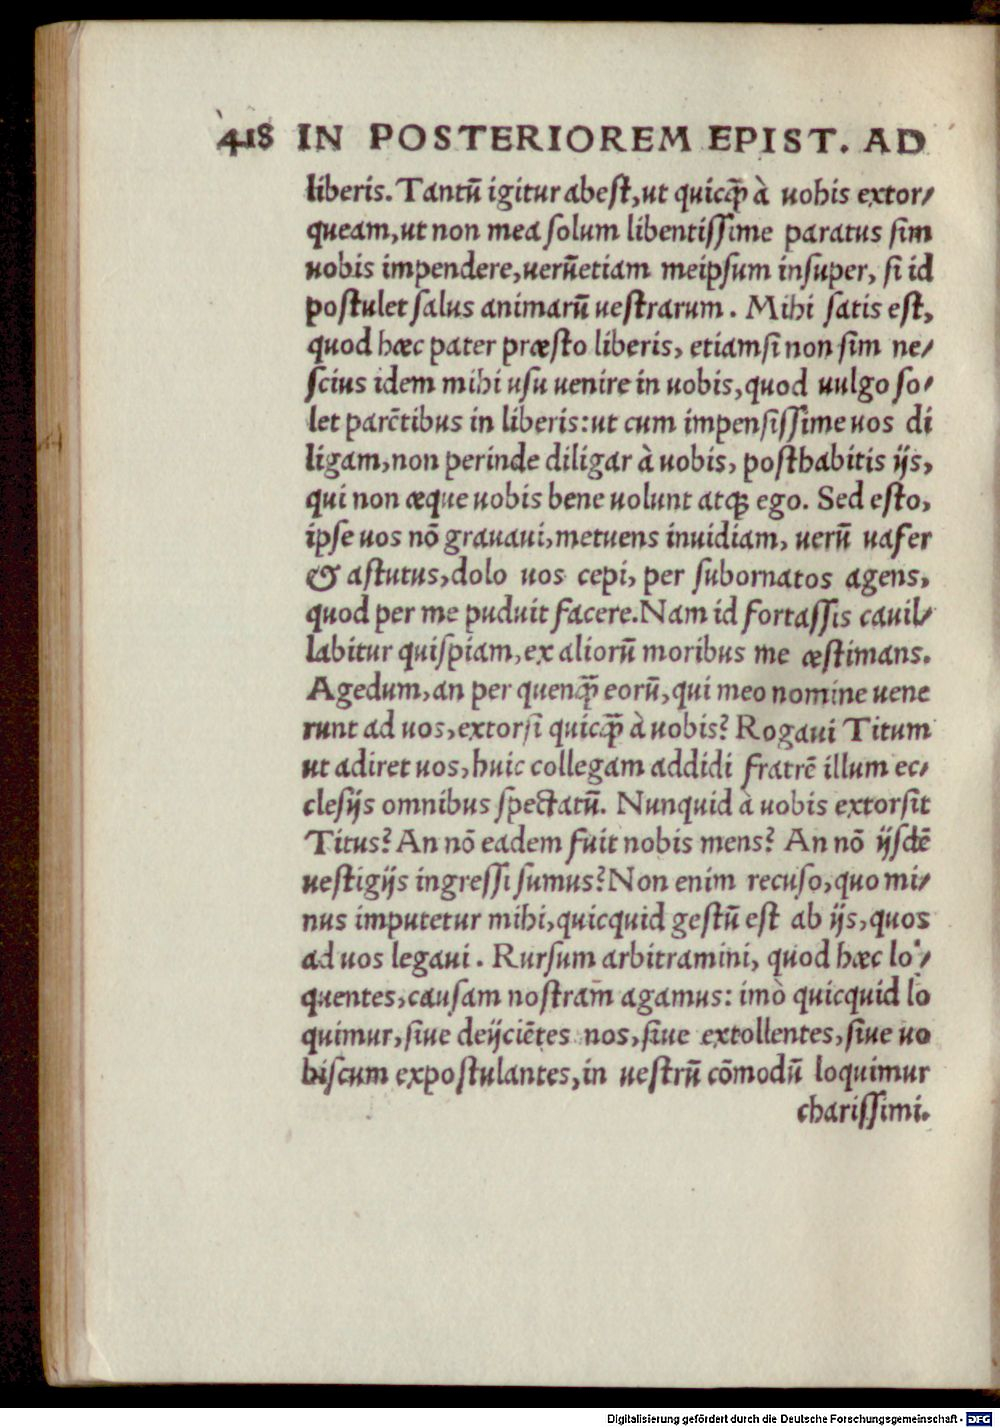 418 IN POSTERIOREM EPIST. AD
liberis. Tantũ igitur abest, ut quicꝗ̃ à uobis extor/
queam, ut non mea solum libentissime paratus sim
uobis impendere, uerũetiam meipsum insuper, si id
postulet salus animarũ uestrarum. Mihi satis est,
quod hæc pater præsto liberis, etiamsi non sim ne/
scius idem mihi usu uenire in uobis, quod uulgo so/
let parẽtibus in liberis: ut cum impensissime uos di
ligam, non perinde diligar à uobis, posthabitis ijs,
qui non æque uobis bene uolunt atqꝫ ego. Sed esto,
ipse uos nõ grauaui, metuens inuidiam, uerũ uafer
& astutus, dolo uos cepi, per subornatos agens,
quod per me puduit facere. Nam id fortassis cauil/
labitur quispiam, ex aliorũ moribus me æstimans.
Agedum, an per quenꝗ̃ eorũ, qui meo nomine uene
runt ad uos, extorsi quicꝗ̃ à uobis? Rogaui Titum
ut adiret uos, huic collegam addidi fratrẽ illum ec/
clesijs omnibus spectatũ. Nunquid à uobis extorsit
Titus? An nõ eadem fuit nobis mens? An nõ ijsdẽ
uestigijs ingressi sumus? Non enim recuso, quo mi/
nus imputetur mihi, quicquid gestũ est ab ijs, quos
ad uos legaui. Rursum arbitramini, quod hæc lo/
quentes, causam nostram̃ agamus: imò quicquid lo
quimur, siue deijciẽtes nos, siue extollentes, siue uo
biscum expostulantes, in uestrũ cõmodũ loquimur
charissimi.
Digitalisierung gefördert durch die Deutsche Forschungsgemeinschaft - DFG